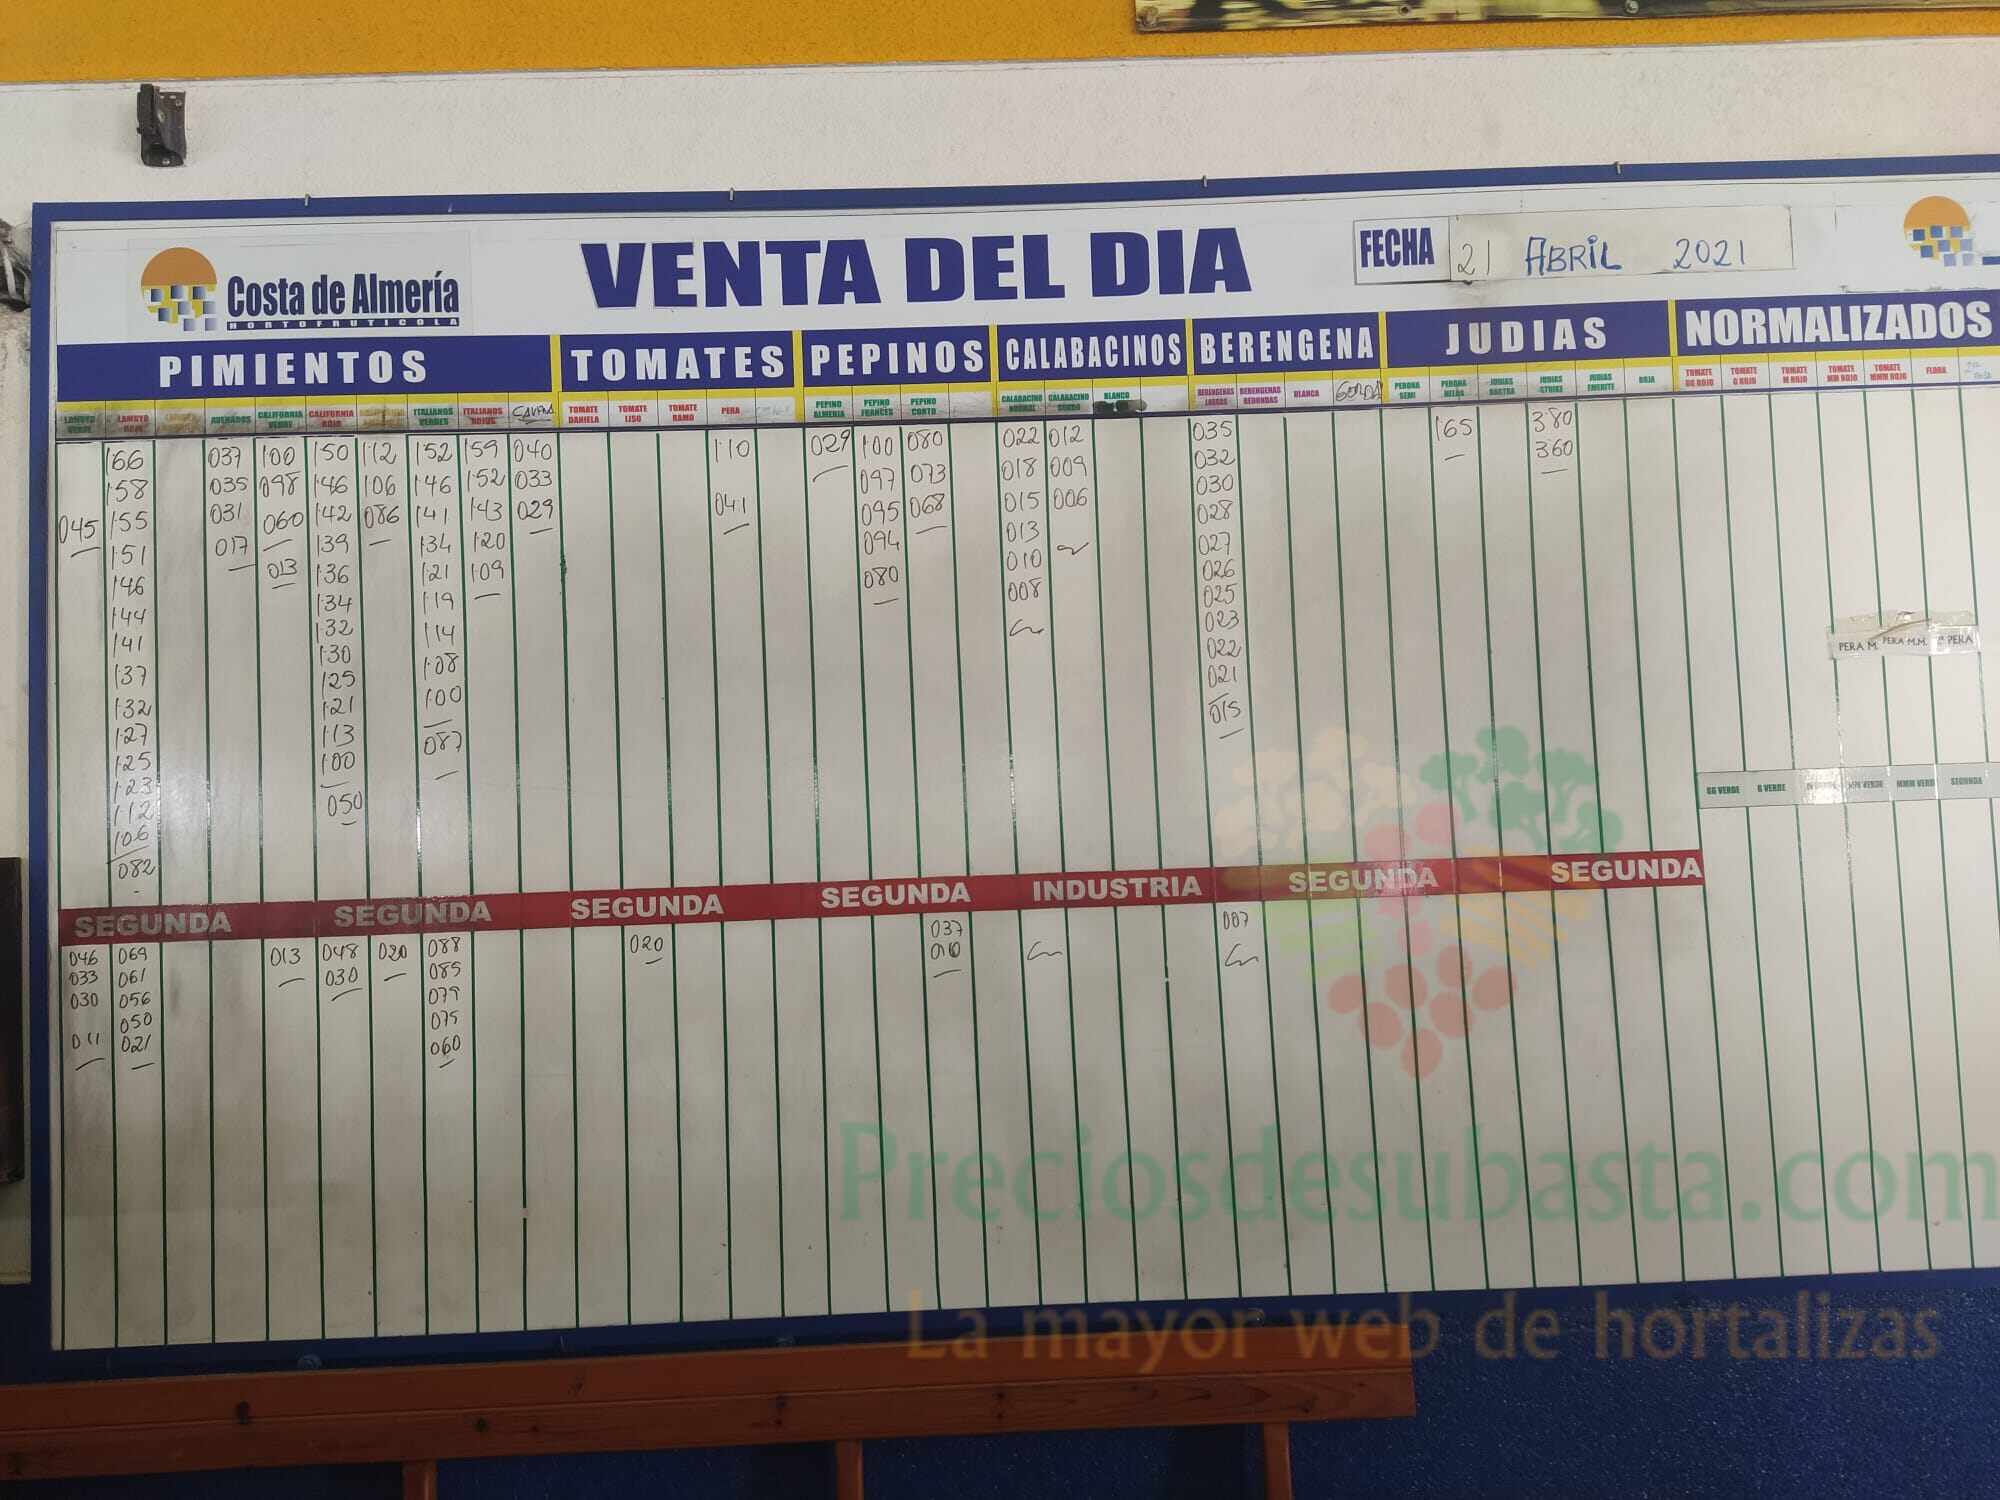 Costa de Almería
HORTOFRUTICOLA
VENTA DEL DIA
FECHA 21 ABRIL 2021
PIMIENTOS TOMATES PEPINOS CALABACINOS BERENGENA JUDIAS NORMALIZADOS
LAMUYO VERDE
LAMUYO ROJO
AVENADOS
CALIFORNIA VERDE
CALIFORNIA ROJO
ITALIANOS VERDES
ITALIANOS ROJOS
TOMATE DANIELA
TOMATE LISO
TOMATE RAMO
PERA
PEPINO ALMERIA
PEPINO FRANCES
PEPINO CORTO
CALABACINO NORMAL
CALABACINO GORDO
BLANCO
BERENGENAS LARGAS
BERENGENAS REDONDAS
BLANCA
GORDA
PERONA SEMI
PERONA HELDA
JUDIAS RASTRA
JUDIAS STRIKE
JUDIAS EMERITE
ROJA
TOMATE GG ROJO
TOMATE G ROJO
TOMATE M ROJO
TOMATE MM ROJO
TOMATE MMM ROJO
FLORA
045
166
158
155
151
146
144
141
137
132
127
125
123
112
106
082
037
035
031
017
100
098
060
013
150
146
142
139
136
134
132
130
125
121
113
100
050
112
106
086
152
146
141
134
121
119
114
108
100
087
159
152
143
120
109
040
033
029
110
041
029
100
097
095
094
080
080
073
068
022
018
015
013
010
008
012
009
006
035
032
030
028
027
026
025
023
022
021
015
165
380
360
PERA M. PERA M.M. 2ª PERA
GG VERDE G VERDE M VERDE MM VERDE MMM VERDE SEGUNDA
SEGUNDA SEGUNDA SEGUNDA SEGUNDA INDUSTRIA SEGUNDA SEGUNDA
046
033
030
011
069
061
056
050
021
013
048
030
020
088
085
079
075
060
020
037
010
007
Preciosdesubasta.com
La mayor web de hortalizas